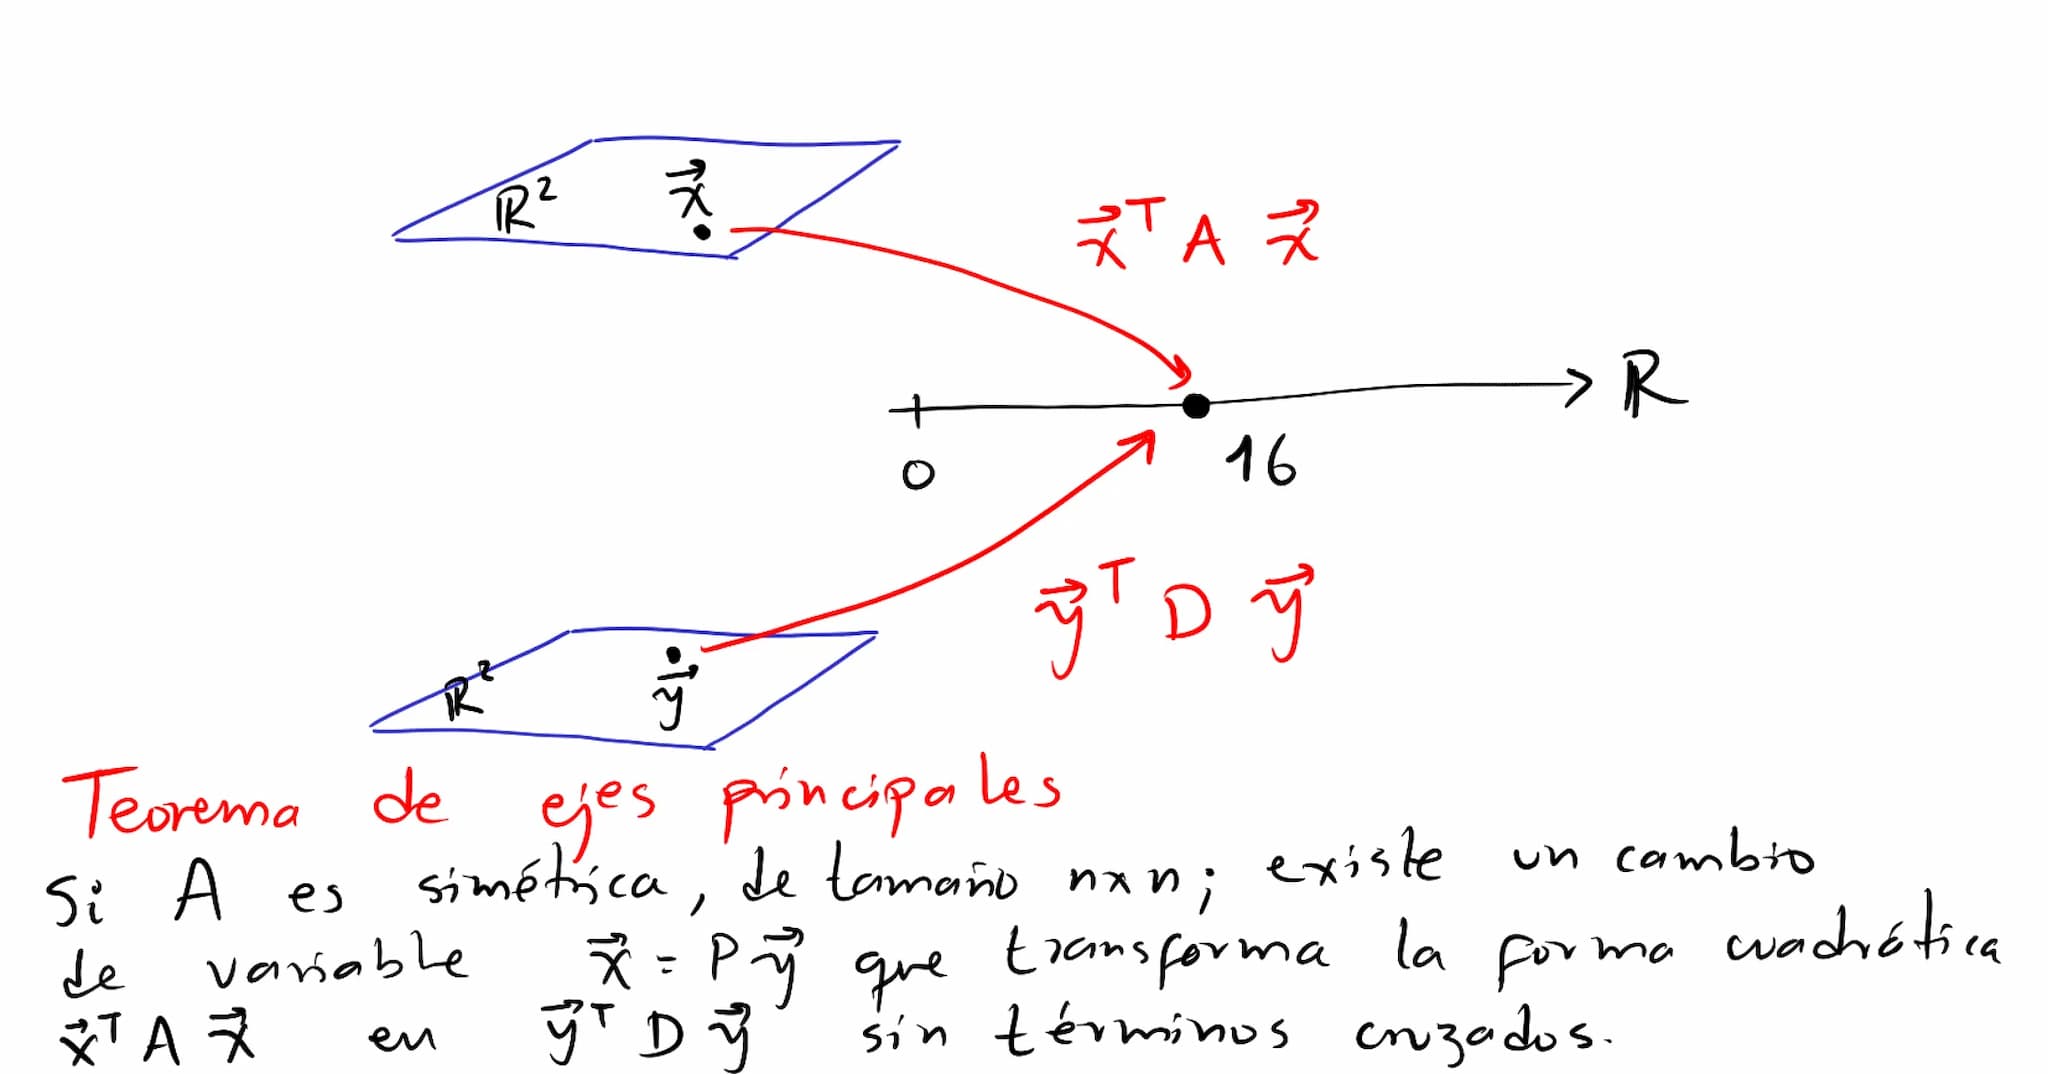 ℝ²
x⃗
x⃗ᵀ A x⃗
ℝ
0
16
y⃗ᵀ D y⃗
ℝ²
y⃗
Teorema de ejes principales
Si A es simétrica, de tamaño n×n; existe un cambio
de variable x⃗ = P y⃗ que transforma la forma cuadrática
x⃗ᵀ A x⃗ en y⃗ᵀ D y⃗ sin términos cruzados.